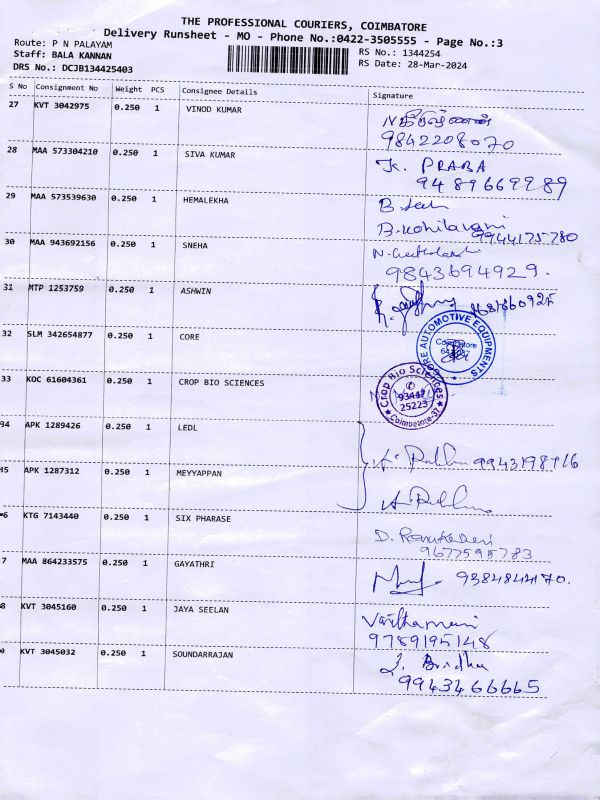 THE PROFESSIONAL COURIERS, COIMBATORE
Delivery Runsheet - MO - Phone No.:0422-3505555 - Page No.:3
Route: P N PALAYAM
RS No.: 1344254
Staff: BALA KANNAN
RS Date: 28-Mar-2024
DRS No.: DCJB134425403
S No Consignment No Weight PCS Consignee Details Signature
27 KVT 3042975 0.250 1 VINOD KUMAR
9842208070
28 MAA 573304210 0.250 1 SIVA KUMAR K. PRABA
9489669989
29 MAA 573539630 0.250 1 HEMALEKHA
B.Kohilavani
9944175780
30 MAA 943692156 0.250 1 SNEHA
9843694929.
31 MTP 1253759 0.250 1 ASHWIN
32 SLM 342654877 0.250 1 CORE
CORE AUTOMOTIVE EQUIPMENTS
Coimbatore
33 KOC 61604361 0.250 1 CROP BIO SCIENCES
Crop Bio Sciences
93447
25223
Coimbatore-37
34 APK 1289426 0.250 1 LEDL
9943198716
35 APK 1287312 0.250 1 MEYYAPPAN
6 KTG 7143440 0.250 1 SIX PHARASE
D. Renukadevi
9677595783
7 MAA 864233575 0.250 1 GAYATHRI
9384844170.
8 KVT 3045160 0.250 1 JAYA SEELAN
9789195148
KVT 3045032 0.250 1 SOUNDARRAJAN
9943466665